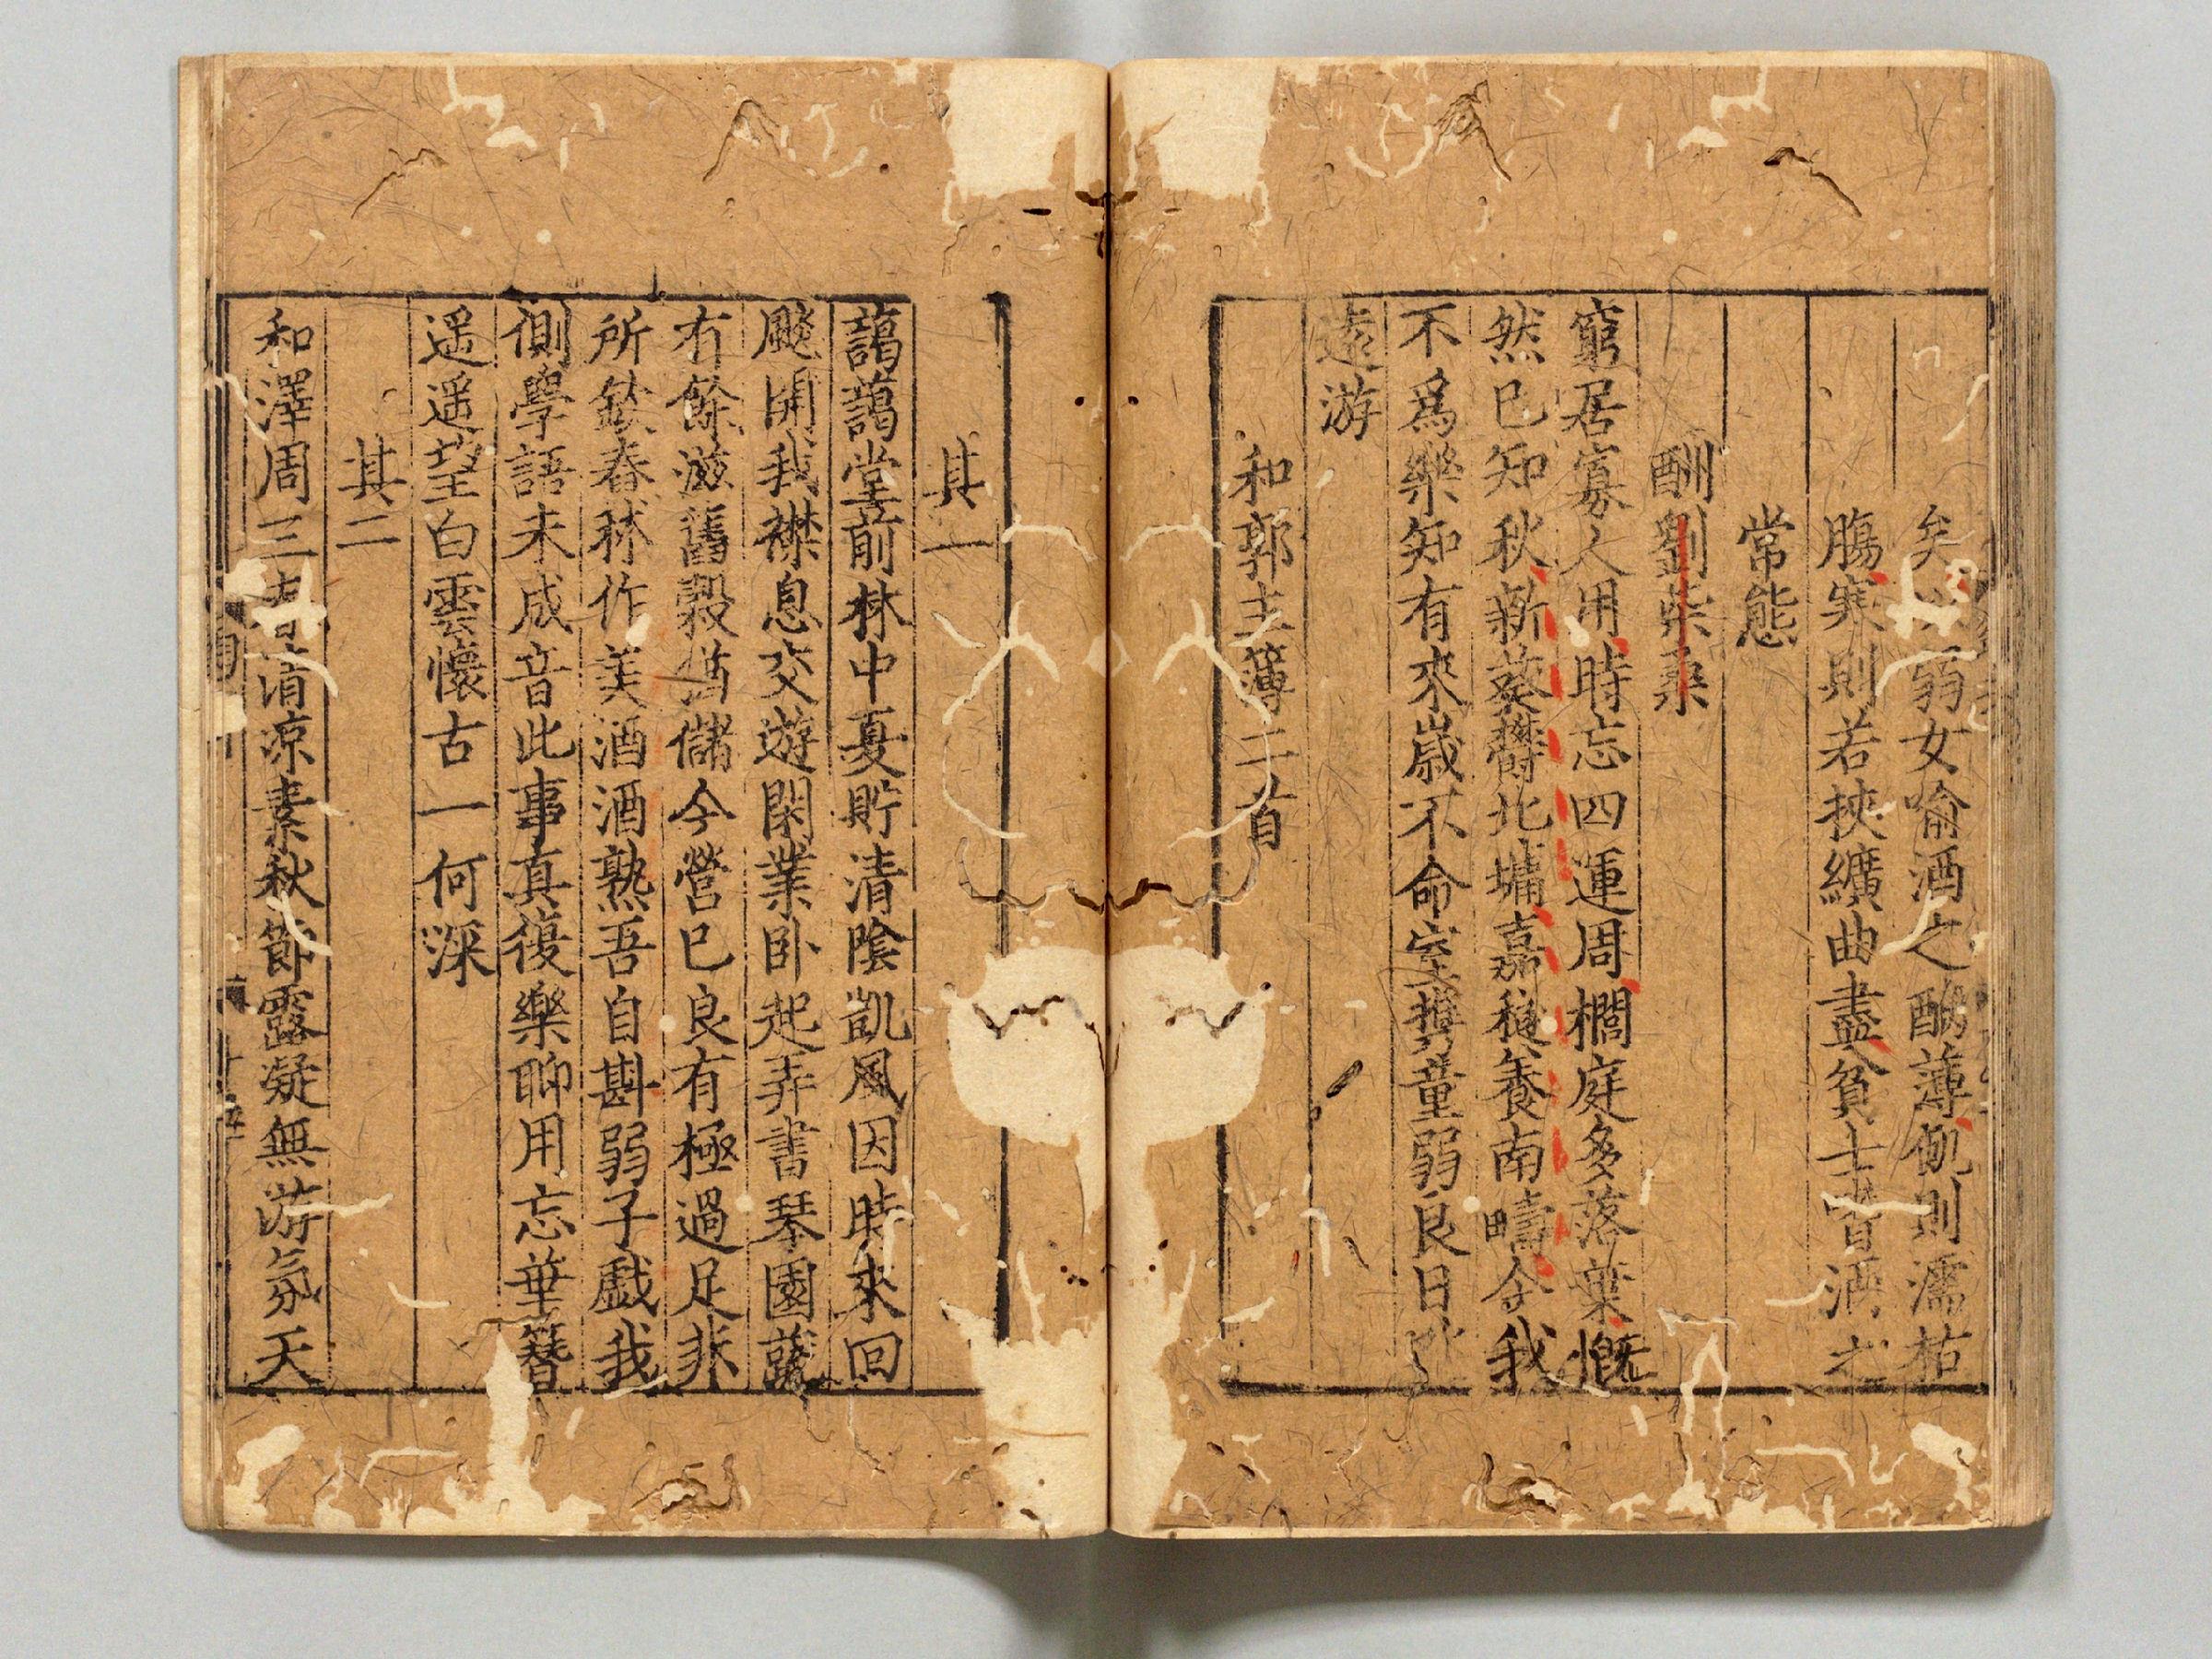 矣 弱女喻酒之醨薄飢則濡枯
腸寒則若挾纊曲盡貧士嗜酒之
常態
酬劉柴桑
窮居寡人用時忘四運周櫚庭多落葉慨
然已知秋新葵鬱北墉嘉穟養南疇今我
不爲樂知有來歲不命室携童弱良日
遠游
和郭主簿二首
其一
藹藹堂前林中夏貯清陰凱風因時來回
飈開我襟息交遊閑業卧起弄書琴園蔬
有餘滋舊穀猶儲今營已良有極過足非
所欽春秫作美酒酒熟吾自斟弱子戱我
側學語未成音此事真復樂聊用忘華簪
遥遥望白雲懷古一何深
其二
和澤周三春清凉素秋節露凝無游氛天